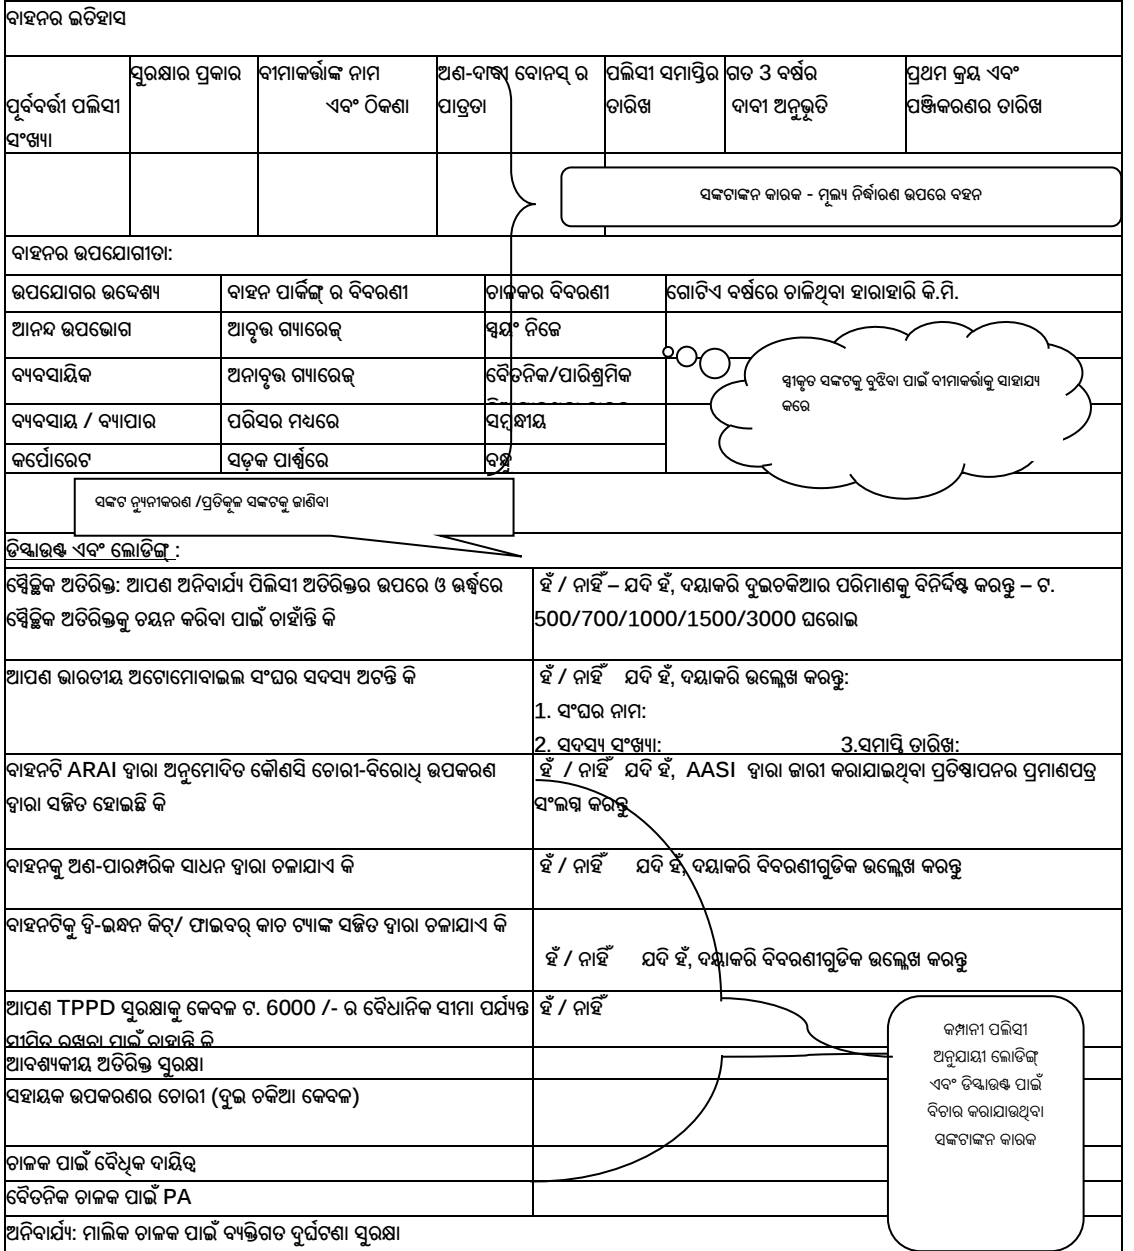 ବାହନର ଇତିହାସ
ପୂର୍ବବର୍ତ୍ତୀ ପଲିସୀ
ସଂଖ୍ୟା
ସୁରକ୍ଷାର ପ୍ରକାର
ବୀମାକର୍ତ୍ତାଙ୍କ ନାମ
ଏବଂ ଠିକଣା
ଅଣ-ଦାବୀ ବୋନସ୍ ର
ପାତ୍ରତା
ପଲିସୀ ସମାପ୍ତିର
ତାରିଖ
ଗତ 3 ବର୍ଷର
ଦାବୀ ଅନୁଭୂତି
ପ୍ରଥମ କ୍ରୟ ଏବଂ
ପଞ୍ଜିକରଣର ତାରିଖ
ସଙ୍କଟାଙ୍କନ କାରକ - ମୂଲ୍ୟ ନିର୍ଦ୍ଧାରଣ ଉପରେ ବହନ
ବାହନର ଉପଯୋଗୀତା:
ଉପଯୋଗର ଉଦ୍ଦେଶ୍ୟ ବାହନ ପାର୍କିଙ୍ଗ୍ ର ବିବରଣୀ ଚାଳକର ବିବରଣୀ ଗୋଟିଏ ବର୍ଷରେ ଚାଲିଥିବା ହାରାହାରି କି.ମି.
ଆନନ୍ଦ ଉପଭୋଗ ଆବୃତ୍ତ ଗ୍ୟାରେଜ୍ ସ୍ୱୟଂ ନିଜେ
ବ୍ୟବସାୟିକ ଅନାବୃତ୍ତ ଗ୍ୟାରେଜ୍ ବୈତନିକ/ପାରିଶ୍ରମିକ
ବ୍ୟବସାୟ / ବ୍ୟାପାର ପରିସର ମଧ୍ୟରେ ସମ୍ବନ୍ଧୀୟ
କର୍ପୋରେଟ ସଡ଼କ ପାର୍ଶ୍ୱରେ ବନ୍ଧୁ
ସ୍ୱୀକୃତ ସଙ୍କଟକୁ ବୁଝିବା ପାଇଁ ବୀମାକର୍ତ୍ତାକୁ ସାହାଯ୍ୟ
କରେ
ସଙ୍କଟ ନ୍ୟୁନୀକରଣ /ପ୍ରତିକୂଳ ସଙ୍କଟକୁ ଜାଣିବା
ଡିସ୍କାଉଣ୍ଟ ଏବଂ ଲୋଡିଙ୍ଗ୍ :
ସ୍ୱୈଚ୍ଛିକ ଅତିରିକ୍ତ: ଆପଣ ଅନିବାର୍ଯ୍ୟ ପିଲିସୀ ଅତିରିକ୍ତର ଉପରେ ଓ ଊର୍ଦ୍ଧ୍ୱରେ
ସ୍ୱୈଚ୍ଛିକ ଅତିରିକ୍ତକୁ ଚୟନ କରିବା ପାଇଁ ଚାହାଁନ୍ତି କି
ହଁ / ନାହିଁ – ଯଦି ହଁ, ଦୟାକରି ଦୁଇଚକିଆର ପରିମାଣକୁ ବିନିର୍ଦ୍ଦିଷ୍ଟ କରନ୍ତୁ – ଟ.
500/700/1000/1500/3000 ଘରୋଇ
ଆପଣ ଭାରତୀୟ ଅଟୋମୋବାଇଲ ସଂଘର ସଦସ୍ୟ ଅଟନ୍ତି କି
ହଁ / ନାହିଁ ଯଦି ହଁ, ଦୟାକରି ଉଲ୍ଲେଖ କରନ୍ତୁ:
1. ସଂଘର ନାମ:
2. ସଦସ୍ୟ ସଂଖ୍ୟା: 3.ସମାପ୍ତି ତାରିଖ:
ବାହନଟି ARAI ଦ୍ୱାରା ଅନୁମୋଦିତ କୌଣସି ଚୋରୀ-ବିରୋଧି ଉପକରଣ
ଦ୍ୱାରା ସଜ୍ଜିତ ହୋଇଛି କି
ହଁ / ନାହିଁ ଯଦି ହଁ, AASI ଦ୍ୱାରା ଜାରୀ କରାଯାଇଥିବା ପ୍ରତିଷ୍ଠାପନର ପ୍ରମାଣପତ୍ର
ସଂଲଗ୍ନ କରନ୍ତୁ
ବାହନକୁ ଅଣ-ପାରମ୍ପରିକ ସାଧନ ଦ୍ୱାରା ଚଳାଯାଏ କି
ହଁ / ନାହିଁ ଯଦି ହଁ, ଦୟାକରି ବିବରଣୀଗୁଡିକ ଉଲ୍ଲେଖ କରନ୍ତୁ
ବାହନଟିକୁ ଦ୍ୱି-ଇନ୍ଧନ କିଟ୍/ ଫାଇବର୍ କାଚ ଟ୍ୟାଙ୍କ ସଜ୍ଜିତ ଦ୍ୱାରା ଚଳାଯାଏ କି
ହଁ / ନାହିଁ ଯଦି ହଁ, ଦୟାକରି ବିବରଣୀଗୁଡିକ ଉଲ୍ଲେଖ କରନ୍ତୁ
ଆପଣ TPPD ସୁରକ୍ଷାକୁ କେବଳ ଟ. 6000 /- ର ବୈଧାନିକ ସୀମା ପର୍ଯ୍ୟନ୍ତ
ସୀମିତ ରଖିବା ପାଇଁ ଚାହାନ୍ତି କି
ହଁ / ନାହିଁ
ଆବଶ୍ୟକୀୟ ଅତିରିକ୍ତ ସୁରକ୍ଷା
ସହାୟକ ଉପକରଣର ଚୋରୀ (ଦୁଇ ଚକିଆ କେବଳ)
ଚାଳକ ପାଇଁ ବୈଧିକ ଦାୟିତ୍ୱ
ବୈତନିକ ଚାଳକ ପାଇଁ PA
ଅନିବାର୍ଯ୍ୟ: ମାଲିକ ଚାଳକ ପାଇଁ ବ୍ୟକ୍ତିଗତ ଦୁର୍ଘଟଣା ସୁରକ୍ଷା
କମ୍ପାନୀ ପଲିସୀ
ଅନୁଯାୟୀ ଲୋଡିଙ୍ଗ୍
ଏବଂ ଡିସ୍କାଉଣ୍ଟ ପାଇଁ
ବିଚାର କରାଯାଉଥିବା
ସଙ୍କଟାଙ୍କନ କାରକ